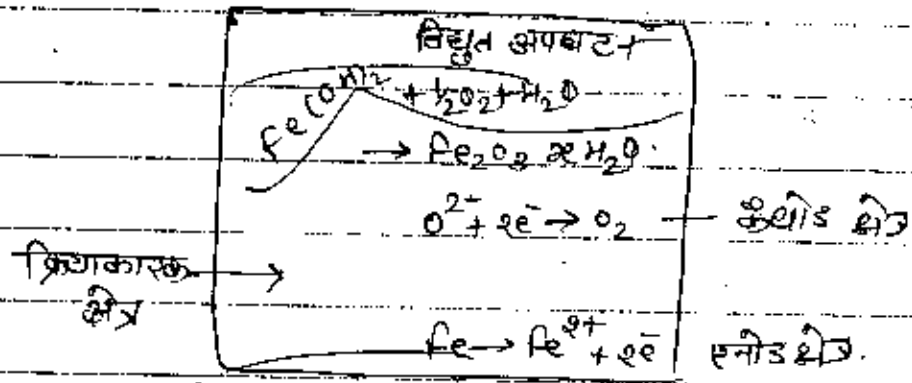 विद्युत अपघटन
Fe(OH)2 + 1/2O2 + H2O
→ Fe2O3 xH2O.
O2- + 2e- → O2 — कैथोड क्षेत्र
क्रियाकारक →
क्षेत्र
Fe → Fe2+ + 2e- एनोड क्षेत्र.